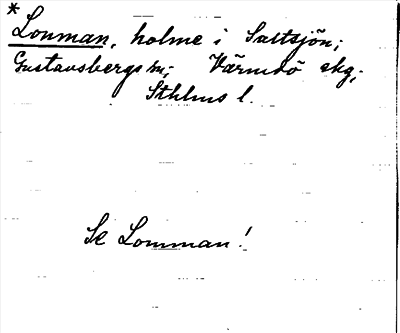 *
Lonman, holme i Saltsjön;
Gustavsbergs sn; Värmdö skg;
Sthlms l.
Se Lomman!